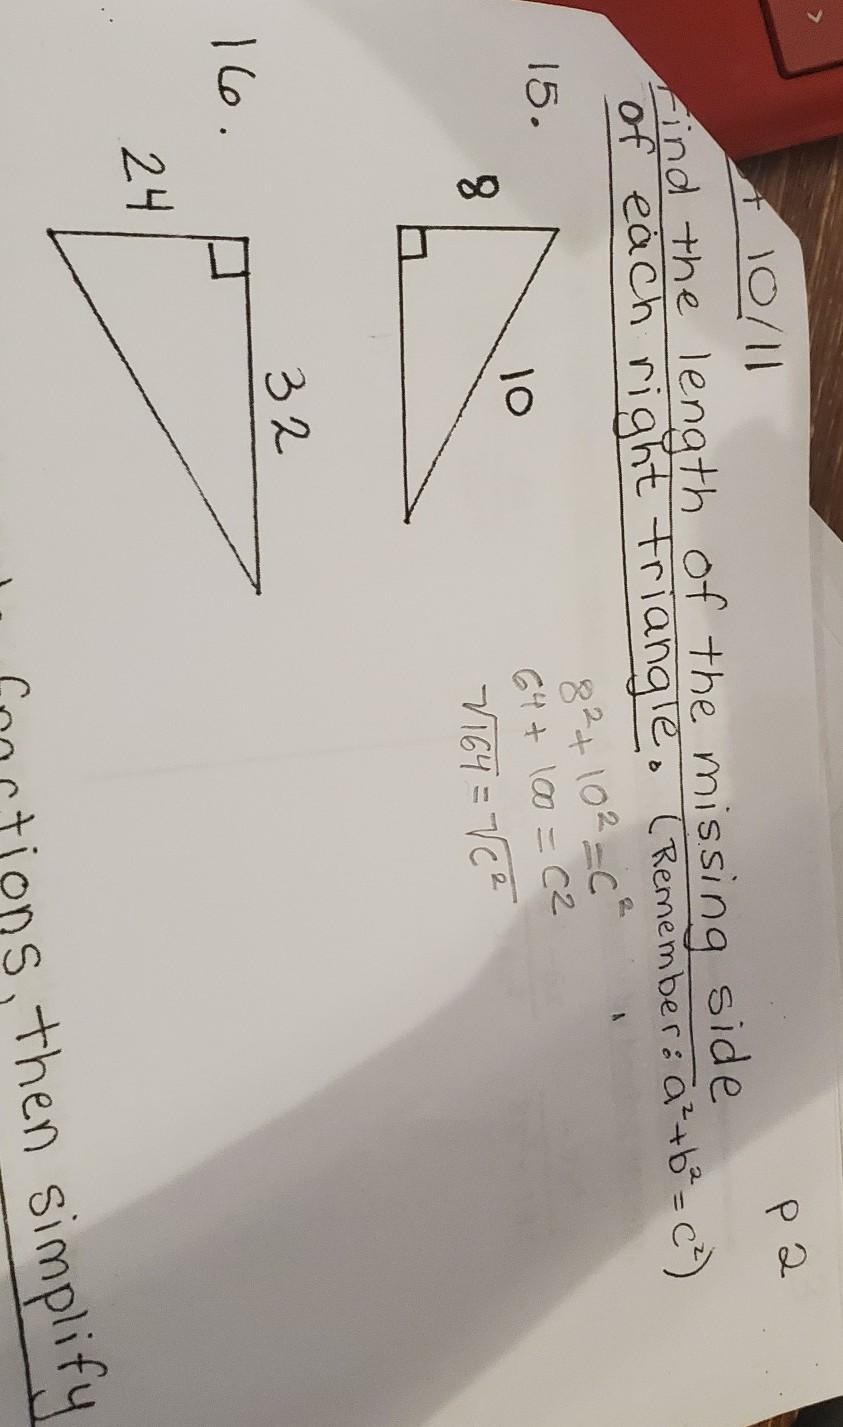 10/11
P2
Find the length of the missing side
of each right triangle. (Remember: a²+b²=c²)
15.
8
10
8²+10²=c²
64+100=c2
√164=√c²
16.
24
32
then simplify